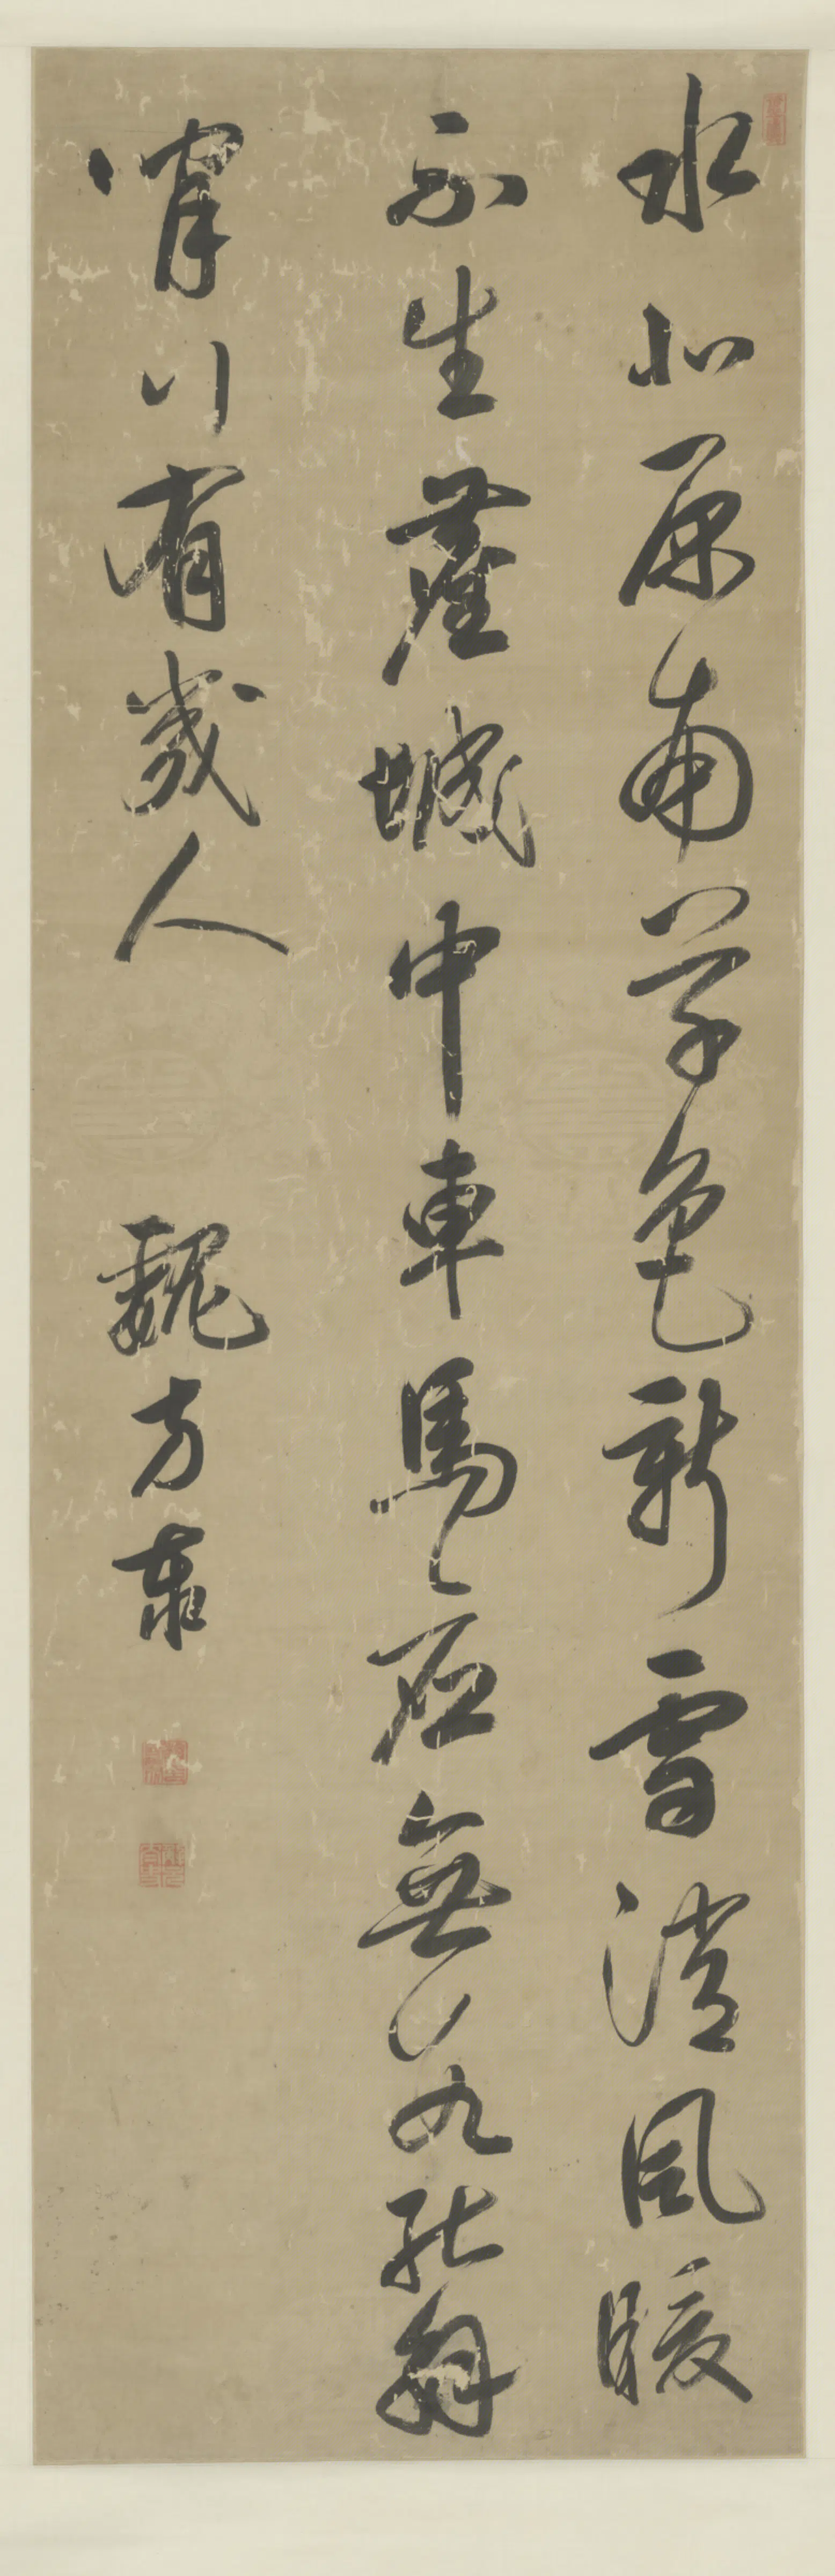 水北原南草色新雪消風暖
不生塵城中車馬應無數能解
閒行有幾人
魏方泰